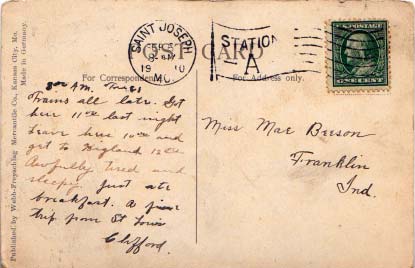 POST CARD
SAINT JOSEPH
8-
1910
MO.
STATION
A
ONE CENT
For Correspondence
For Address only.
Published by Webb-Freyschlag Mercantile Co., Kansas City, Mo.
Made in Germany.
Trains all late. Got
here 11 last night
Leave here 10 and
get to Highland 12
Awfully tired and
sleepy just ate
breakfast. A fine
trip from St Louis
Clifford.
Miss Mae Beeson
Franklin
Ind.